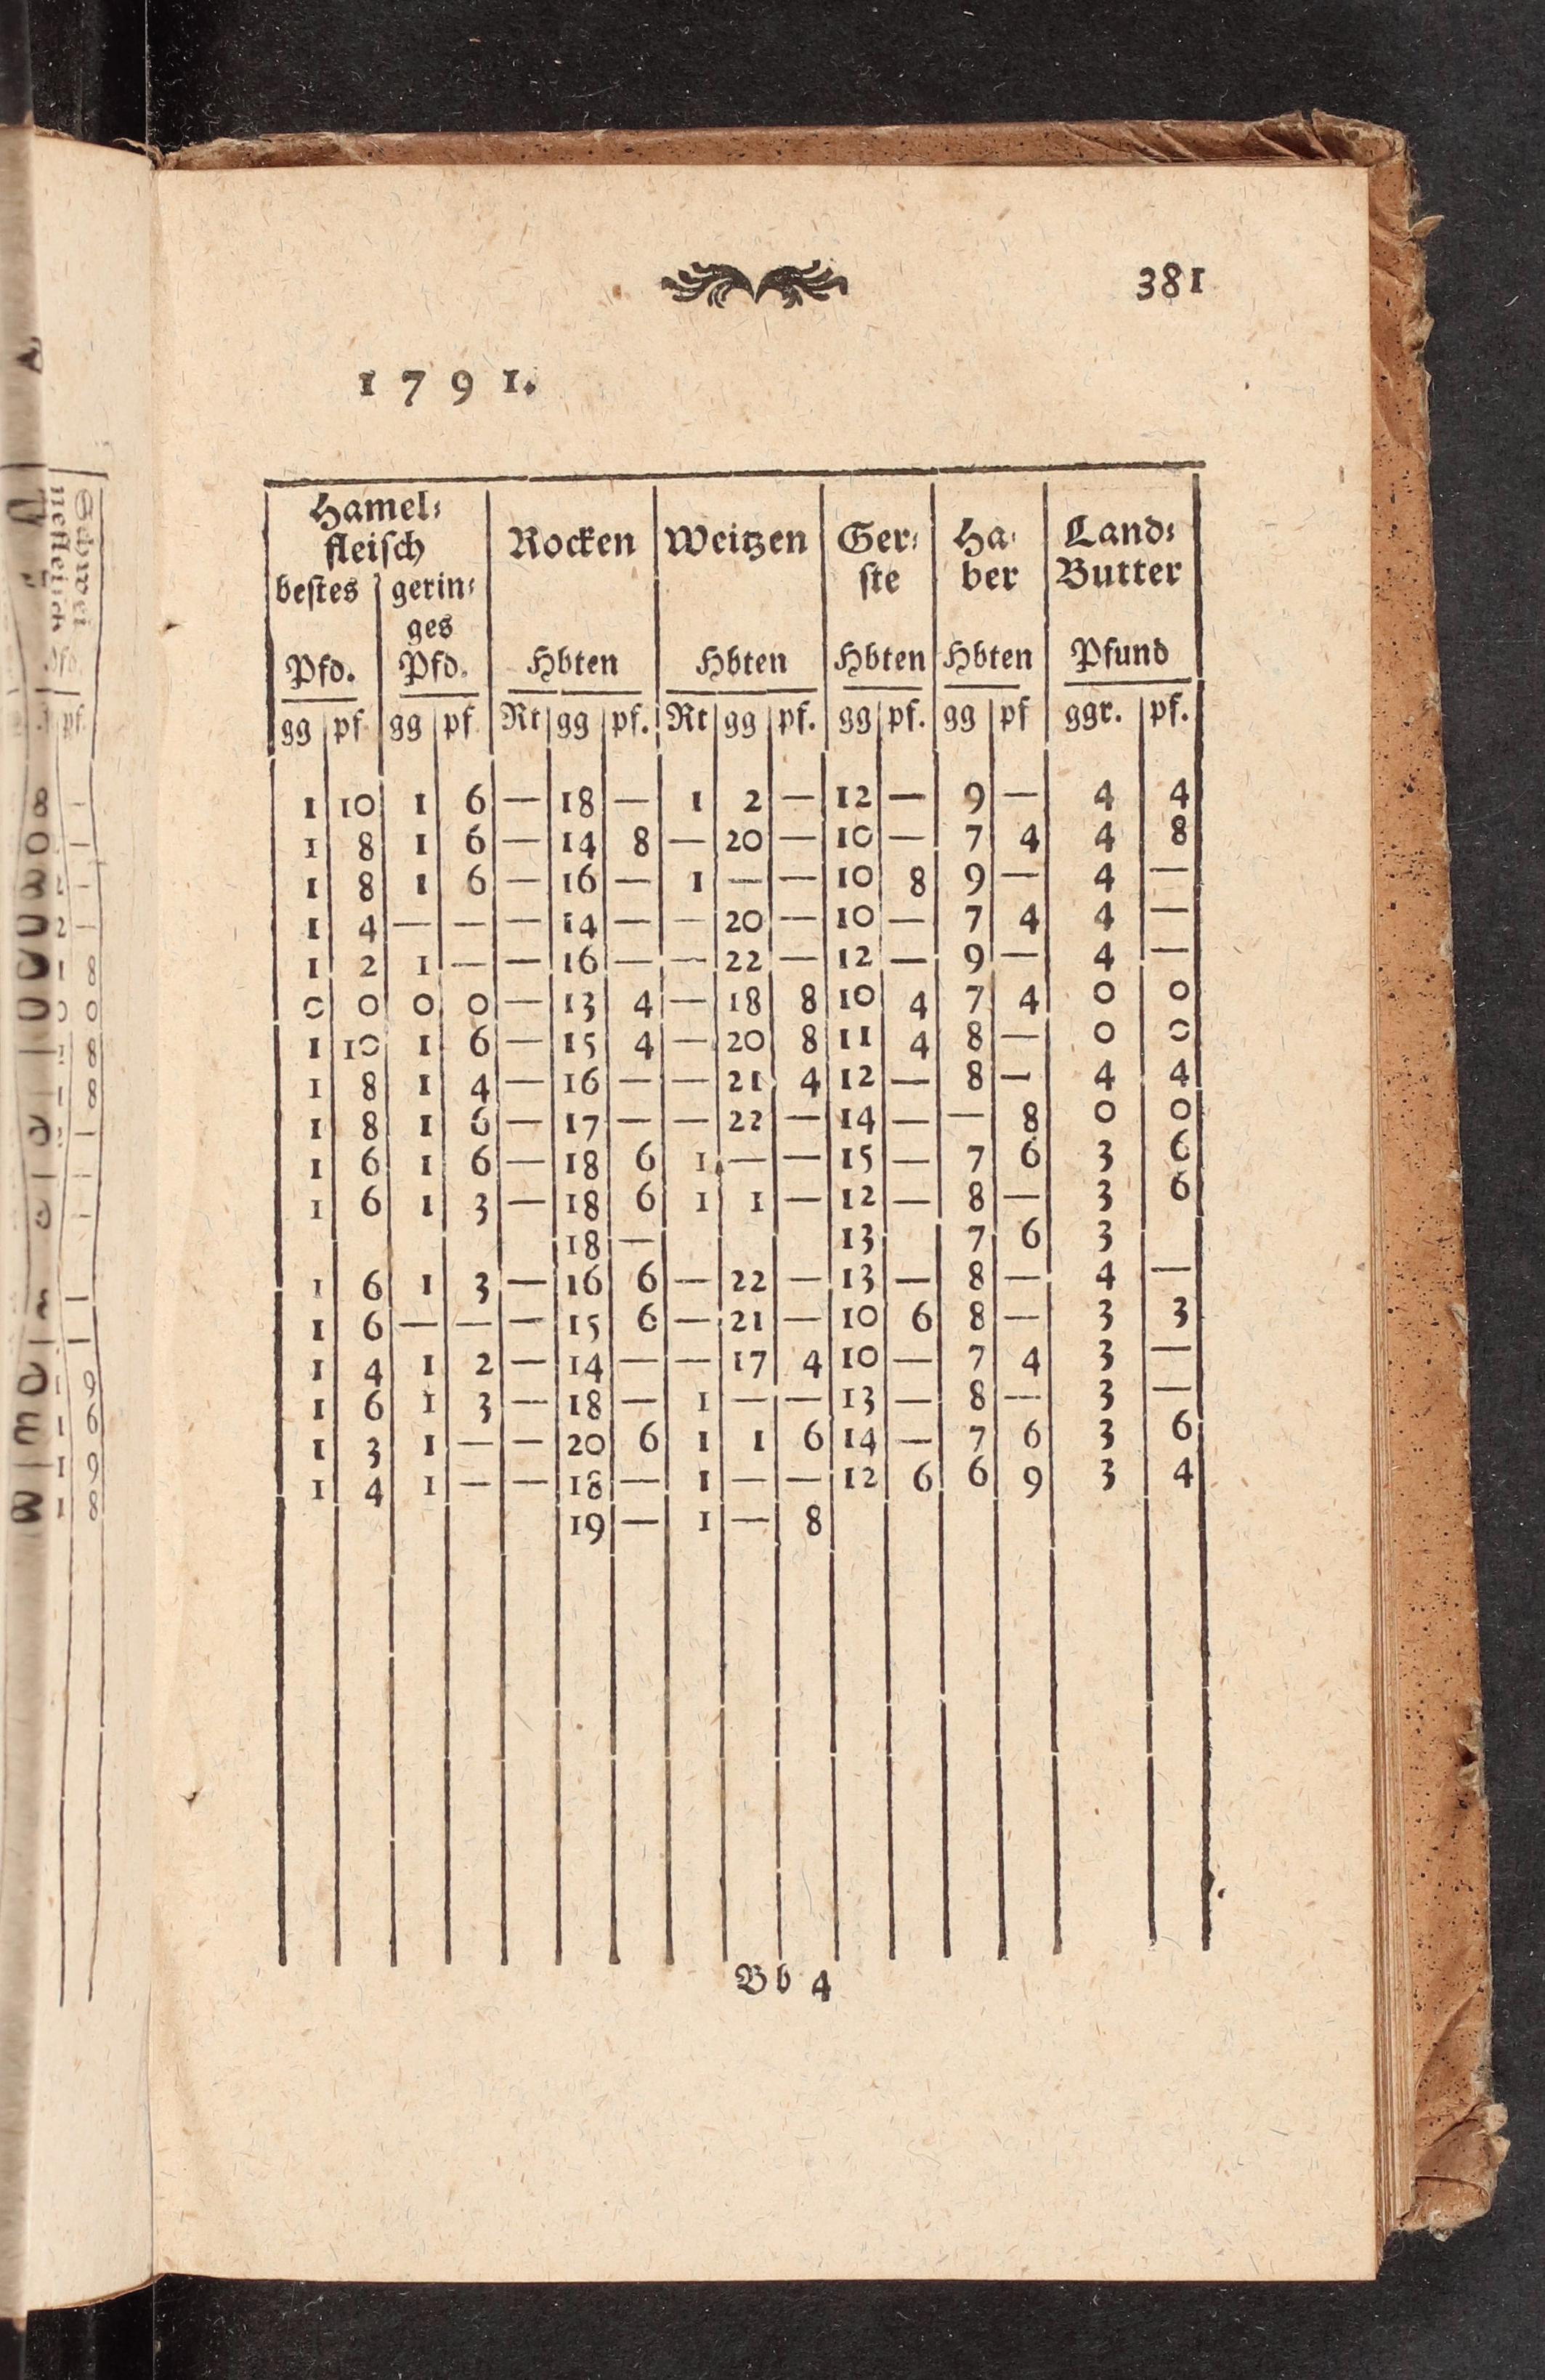 381
1 7 9 1.
Hamel⸗ fleisch | Rocken | Weitzen | Ger⸗ ste | Ha⸗ ber | Land⸗ Butter
bestes | gerin⸗ ges
Pfd. | Pfd. | Hbten | Hbten | Hbten | Hbten | Pfund
gg | pf | gg | pf | Rt | gg | pf. | Rt | gg | pf. | gg | pf. | gg | pf | ggr. | pf.
1 | 10 | 1 | 6 | — | 18 | — | 1 | 2 | — | 12 | — | 9 | — | 4 | 4
1 | 8 | 1 | 6 | — | 14 | 8 | — | 20 | — | 10 | — | 7 | 4 | 4 | 8
1 | 8 | 1 | 6 | — | 16 | — | 1 | — | — | 10 | 8 | 9 | — | 4 | —
1 | 4 | — | — | — | 14 | — | — | 20 | — | 10 | — | 7 | 4 | 4 | —
1 | 2 | 1 | — | — | 16 | — | — | 22 | — | 12 | — | 9 | — | 4 | —
0 | 0 | 0 | 0 | — | 13 | 4 | — | 18 | 8 | 10 | 4 | 7 | 4 | 0 | 0
1 | 10 | 1 | 6 | — | 15 | 4 | — | 20 | 8 | 11 | 4 | 8 | — | 0 | 0
1 | 8 | 1 | 4 | — | 16 | — | — | 21 | 4 | 12 | — | 8 | — | 4 | 4
1 | 8 | 1 | 6 | — | 17 | — | — | 22 | — | 14 | — | — | 8 | 0 | 0
1 | 6 | 1 | 6 | — | 18 | 6 | 1 | — | — | 15 | — | 7 | 6 | 3 | 6
1 | 6 | 1 | 3 | — | 18 | 6 | 1 | 1 | — | 12 | — | 8 | — | 3 | 6
 | | | | | 18 | — | | | | 13 | | 7 | 6 | 3 |
1 | 6 | 1 | 3 | — | 16 | 6 | — | 22 | — | 13 | — | 8 | — | 4 | —
1 | 6 | — | — | — | 15 | 6 | — | 21 | — | 10 | 6 | 8 | — | 3 | 3
1 | 4 | 1 | 2 | — | 14 | — | — | 17 | 4 | 10 | — | 7 | 4 | 3 | —
1 | 6 | 1 | 3 | — | 18 | — | 1 | — | — | 13 | — | 8 | — | 3 | —
1 | 3 | 1 | — | — | 20 | 6 | 1 | 1 | 6 | 14 | — | 7 | 6 | 3 | 6
1 | 4 | 1 | — | — | 18 | — | 1 | — | — | 12 | 6 | 6 | 9 | 3 | 4
 | | | | | 19 | — | 1 | — | 8 | | | | | |
Bb 4